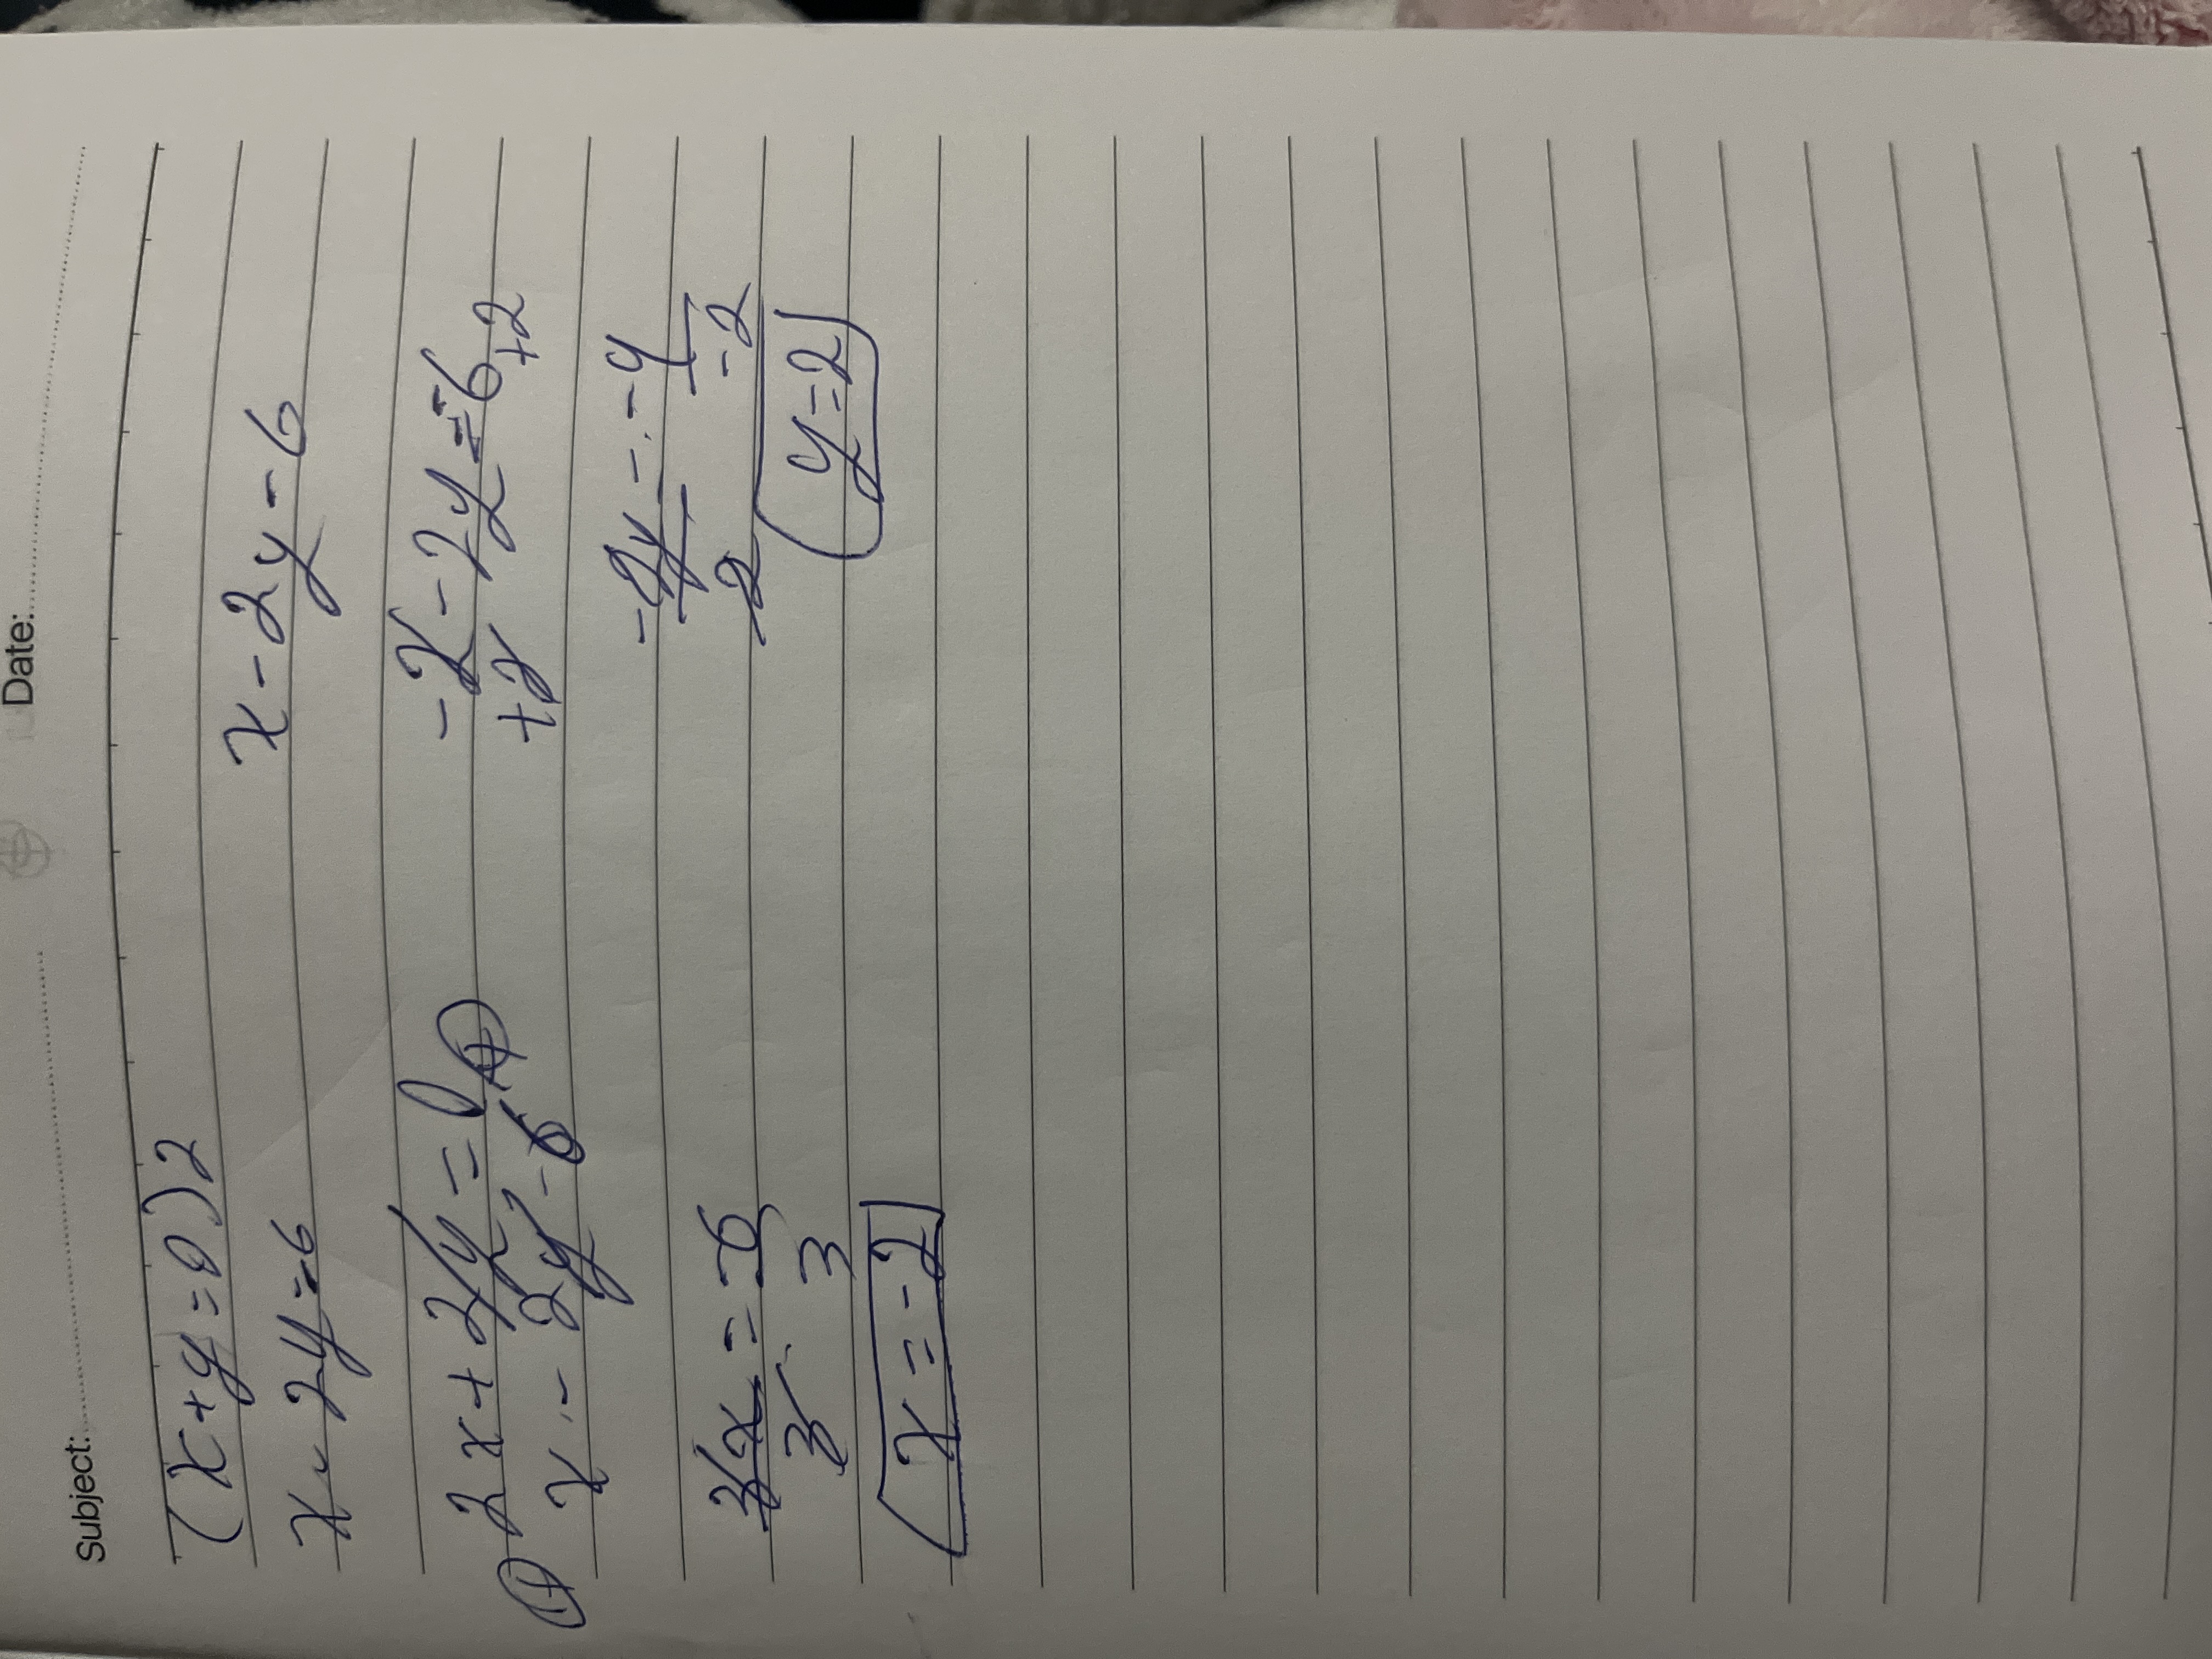 Subject: Date:
(x+y=0)2
x-2y=-6
x-2y-6
2x+2y=0
x-2y-6
-2-2y=-6
+2 +2
3x=-6
3 3
-2y=-4
2 -2
x=-2
y=2